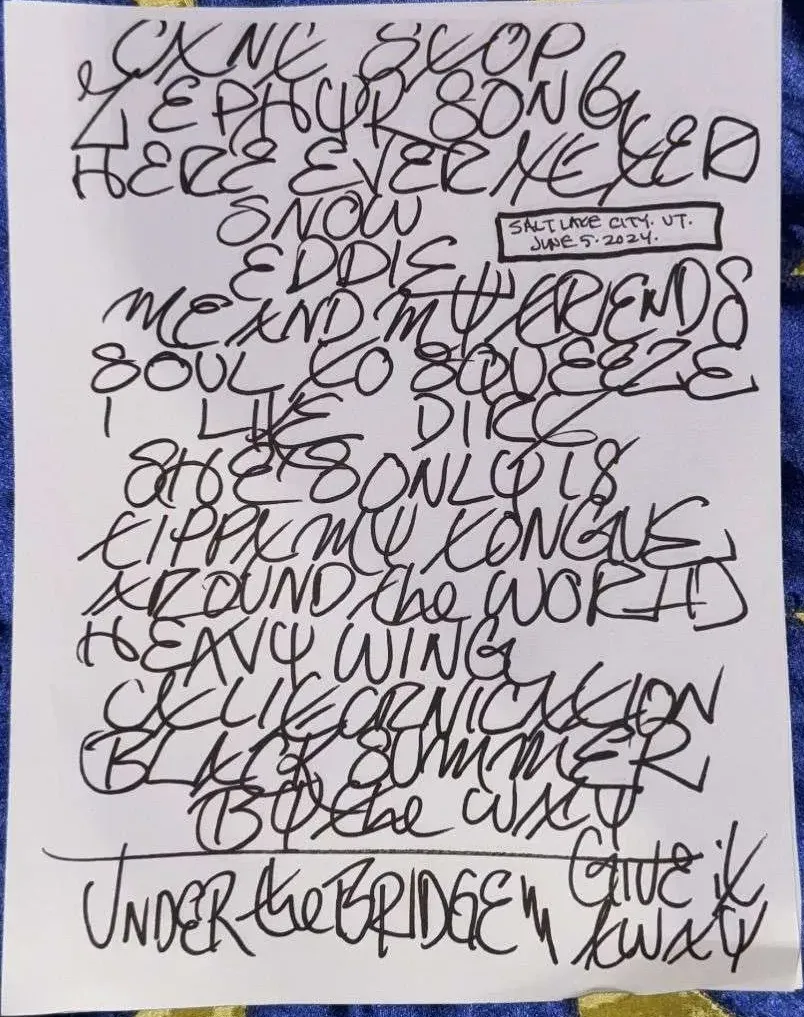 CAN'T STOP
ZEPHYR SONG
HERE EVER AFTER
SNOW
SALT LAKE CITY. UT.
JUNE 5. 2024.
EDDIE
ME AND MY FRIENDS
SOUL TO SQUEEZE
I LIKE DIRT
SHE'S ONLY 18
TIPPA MY TONGUE
AROUND the WORLD
HEAVY WING
CALIFORNICATION
BLACK SUMMER
BY the WAY
UNDER the BRIDGE
GIVE it
AWAY